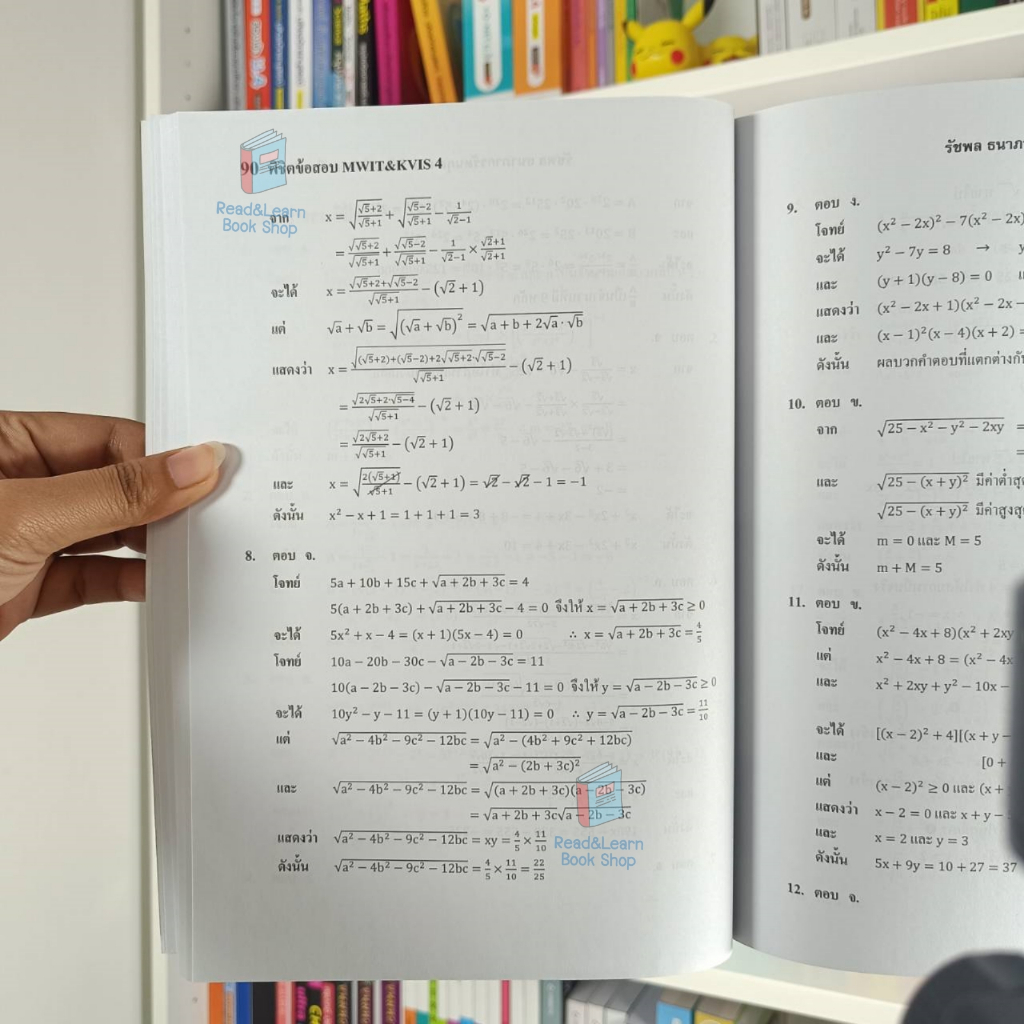 90 พิชิตข้อสอบ MWIT&KVIS 4
Read&Learn
Book Shop
จาก x = √((√5+2)/(√5+1)) + √((√5−2)/(√5+1)) − 1/(√2−1)
= √(√5+2)/√(√5+1) + √(√5−2)/√(√5+1) − 1/(√2−1) × (√2+1)/(√2+1)
จะได้ x = (√(√5+2)+√(√5−2))/√(√5+1) − (√2 + 1)
แต่ √a + √b = √((√a + √b)²) = √(a + b + 2√a · √b)
แสดงว่า x = √((√5+2)+(√5−2)+2√(√5+2)·√(√5−2))/√(√5+1) − (√2 + 1)
= √(2√5+2·√(5−4))/√(√5+1) − (√2 + 1)
= √(2√5+2)/√(√5+1) − (√2 + 1)
และ x = √(2(√5+1)/(√5+1)) − (√2 + 1) = √2 − √2 − 1 = −1
ดังนั้น x² − x + 1 = 1 + 1 + 1 = 3
8. ตอบ จ.
โจทย์ 5a + 10b + 15c + √(a + 2b + 3c) = 4
5(a + 2b + 3c) + √(a + 2b + 3c) − 4 = 0 จึงให้ x = √(a + 2b + 3c) ≥ 0
จะได้ 5x² + x − 4 = (x + 1)(5x − 4) = 0 ∴ x = √(a + 2b + 3c) = 4/5
โจทย์ 10a − 20b − 30c − √(a − 2b − 3c) = 11
10(a − 2b − 3c) − √(a − 2b − 3c) − 11 = 0 จึงให้ y = √(a − 2b − 3c) ≥ 0
จะได้ 10y² − y − 11 = (y + 1)(10y − 11) = 0 ∴ y = √(a − 2b − 3c) = 11/10
แต่ √(a² − 4b² − 9c² − 12bc) = √(a² − (4b² + 9c² + 12bc))
= √(a² − (2b + 3c)²)
และ √(a² − 4b² − 9c² − 12bc) = √((a + 2b + 3c)(a − 2b − 3c))
= √(a + 2b + 3c)√(a − 2b − 3c)
แสดงว่า √(a² − 4b² − 9c² − 12bc) = xy = 4/5 × 11/10
ดังนั้น √(a² − 4b² − 9c² − 12bc) = 4/5 × 11/10 = 22/25
Read&Learn
Book Shop
รัชพล ธนาภ
9. ตอบ ง.
โจทย์ (x² − 2x)² − 7(x² − 2x)
จะได้ y² − 7y = 8 → y
และ (y + 1)(y − 8) = 0
แสดงว่า (x² − 2x + 1)(x² − 2x −
และ (x − 1)²(x − 4)(x + 2) =
ดังนั้น ผลบวกคำตอบที่แตกต่างกัน
10. ตอบ ข.
จาก √(25 − x² − y² − 2xy) =
=
และ √(25 − (x + y)²) มีค่าต่ำสุ
√(25 − (x + y)²) มีค่าสูงสุ
จะได้ m = 0 และ M = 5
ดังนั้น m + M = 5
11. ตอบ ข.
โจทย์ (x² − 4x + 8)(x² + 2xy
แต่ x² − 4x + 8 = (x² − 4x
และ x² + 2xy + y² − 10x −
จะได้ [(x − 2)² + 4][(x + y −
และ [0 +
แต่ (x − 2)² ≥ 0 และ (x +
แสดงว่า x − 2 = 0 และ x + y −
และ x = 2 และ y = 3
ดังนั้น 5x + 9y = 10 + 27 = 37
12. ตอบ จ.